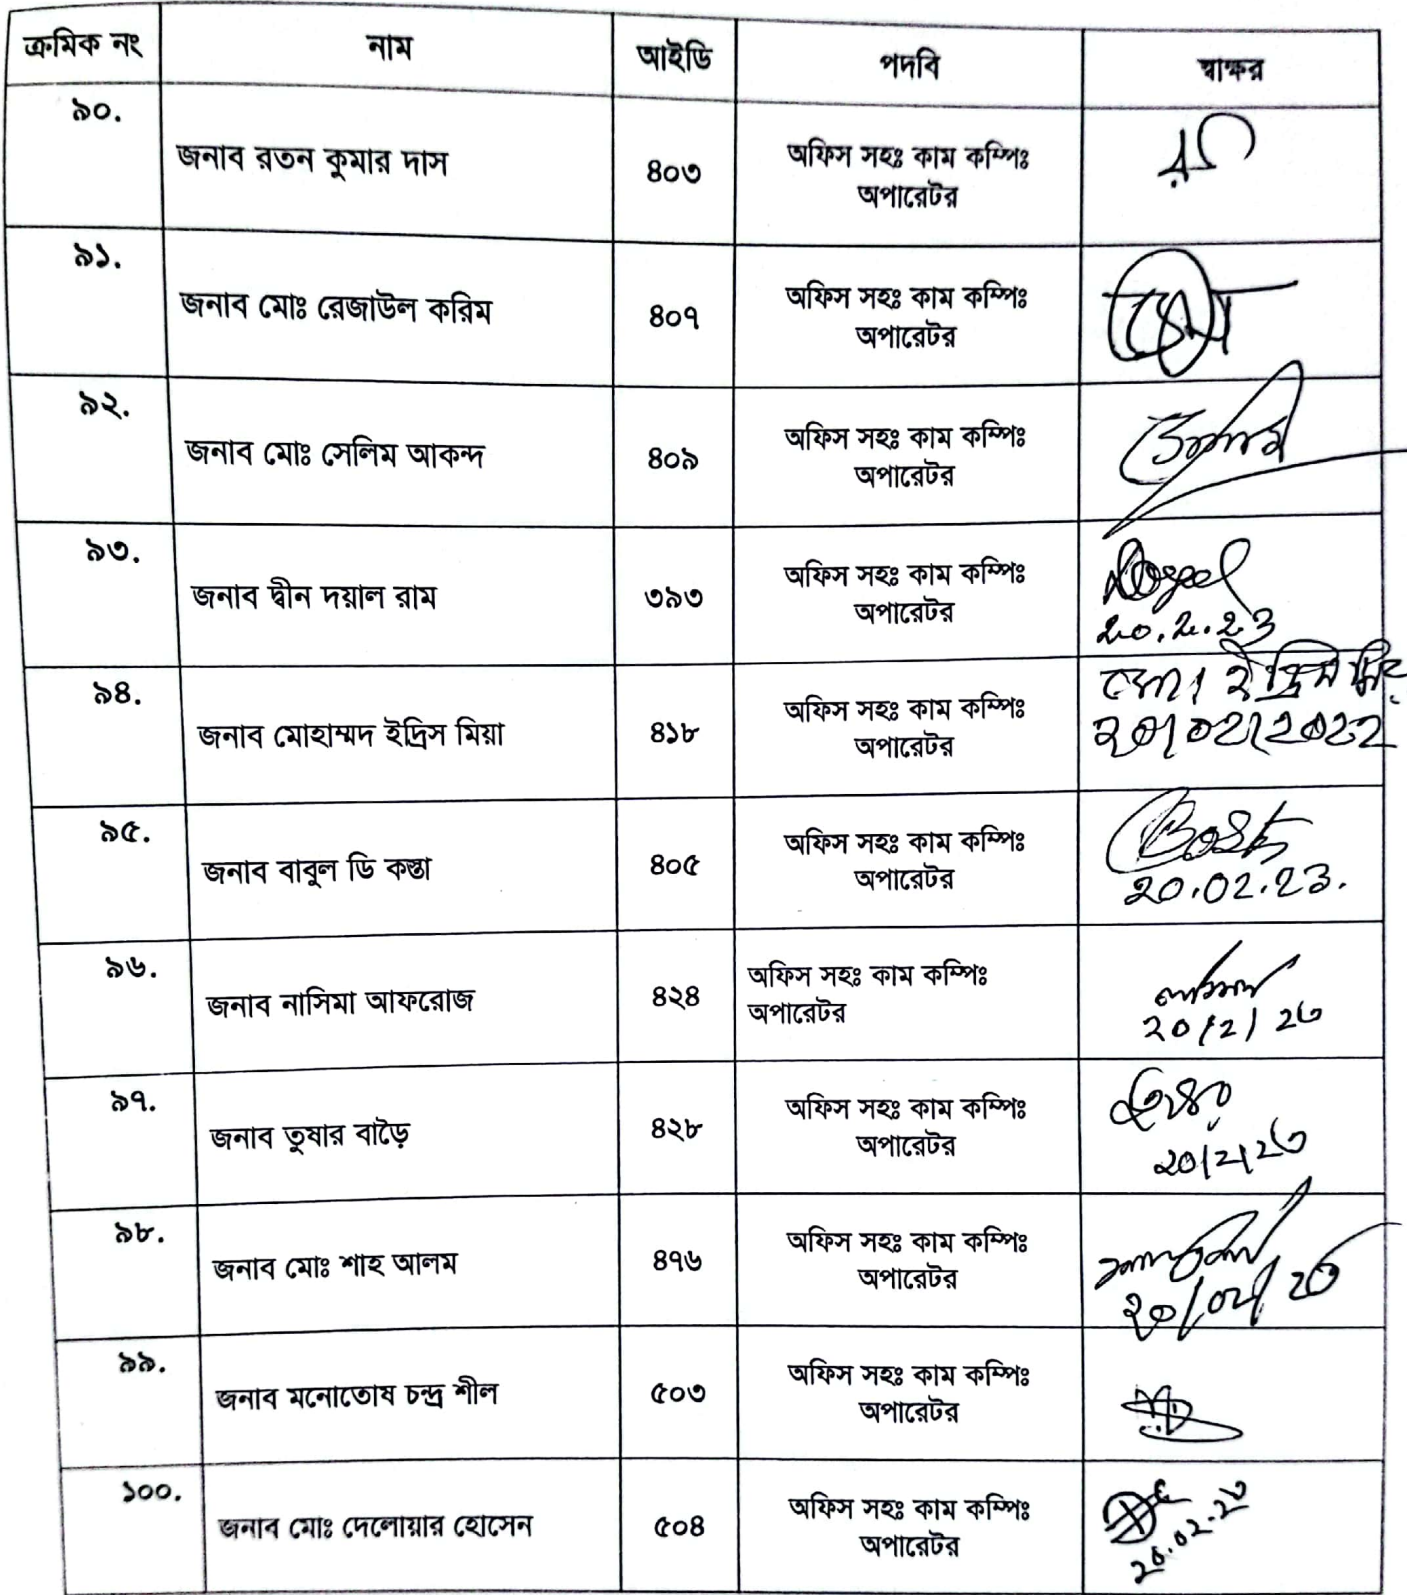 ক্রমিক নং নাম আইডি পদবি স্বাক্ষর
৯০.
জনাব রতন কুমার দাস ৪০৩ অফিস সহঃ কাম কম্পিঃ
অপারেটর
৯১.
জনাব মোঃ রেজাউল করিম ৪০৭ অফিস সহঃ কাম কম্পিঃ
অপারেটর
৯২.
জনাব মোঃ সেলিম আকন্দ ৪০৯ অফিস সহঃ কাম কম্পিঃ
অপারেটর
৯৩.
জনাব দ্বীন দয়াল রাম ৩৯৩ অফিস সহঃ কাম কম্পিঃ
অপারেটর
20.2.23
৯৪.
জনাব মোহাম্মদ ইদ্রিস মিয়া ৪১৮ অফিস সহঃ কাম কম্পিঃ
অপারেটর
৯৫.
জনাব বাবুল ডি কস্তা ৪০৫ অফিস সহঃ কাম কম্পিঃ
অপারেটর
20.02.23.
৯৬.
জনাব নাসিমা আফরোজ ৪২৪ অফিস সহঃ কাম কম্পিঃ
অপারেটর
২০/২/২৩
৯৭.
জনাব তুষার বাড়ৈ ৪২৮ অফিস সহঃ কাম কম্পিঃ
অপারেটর
২০/২/২৩
৯৮.
জনাব মোঃ শাহ আলম ৪৭৬ অফিস সহঃ কাম কম্পিঃ
অপারেটর
২০/০২/২৩
৯৯.
জনাব মনোতোষ চন্দ্র শীল ৫০৩ অফিস সহঃ কাম কম্পিঃ
অপারেটর
১০০.
জনাব মোঃ দেলোয়ার হোসেন ৫০৪ অফিস সহঃ কাম কম্পিঃ
অপারেটর
২০.০২.২৩